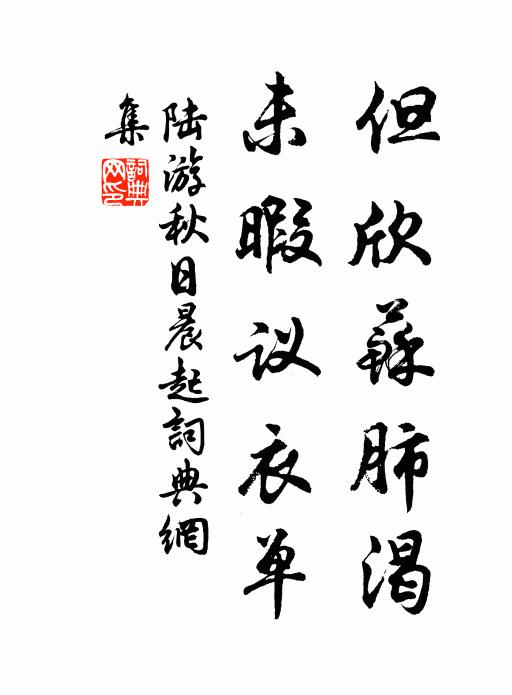 但欣蘇肺渴
未暇议衣单
陆游秋日晨起詞典網
集
詞典网印